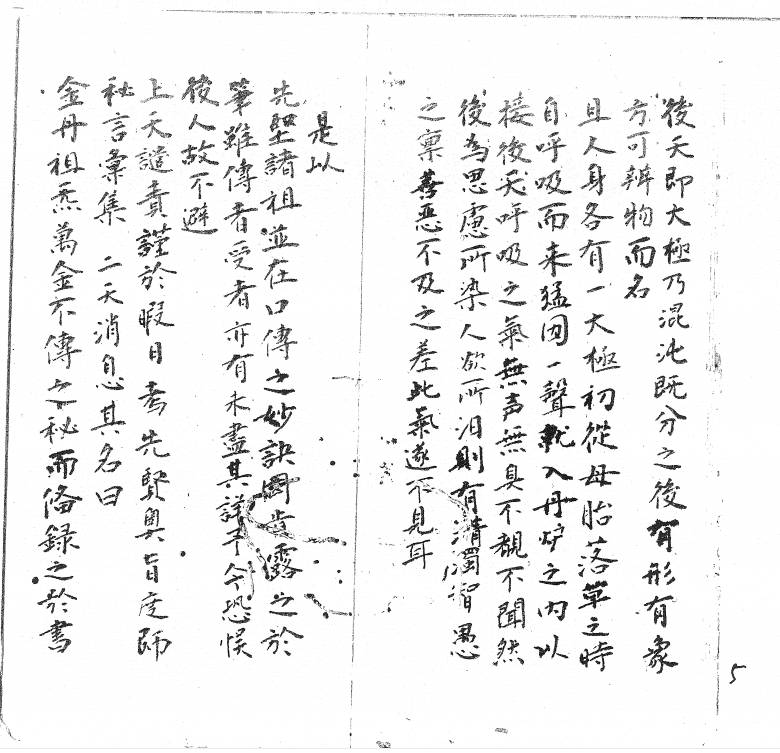 後天即大極乃混沌既分之後有形有象
方可辨物而名
且人身各有一大極初從母胎落草之時
自呼吸而来猛因一聲就入丹炉之内以
接後天呼吸之氣無声無臭不覩不聞然
後為思慮所染人欲所汨則有清濁智愚
之禀善惡不及之差此氣遂不見耳
是以
先聖諸祖並在口傳之妙訣罔肯露之於
筆雖傳者受者亦有未盡其詳予今恐悞
後人故不避
上天譴責謹於暇日考先賢奥旨度師
秘言彙集 二天消息其名曰
金丹祖炁萬金不傳之秘而俻録之於書
5